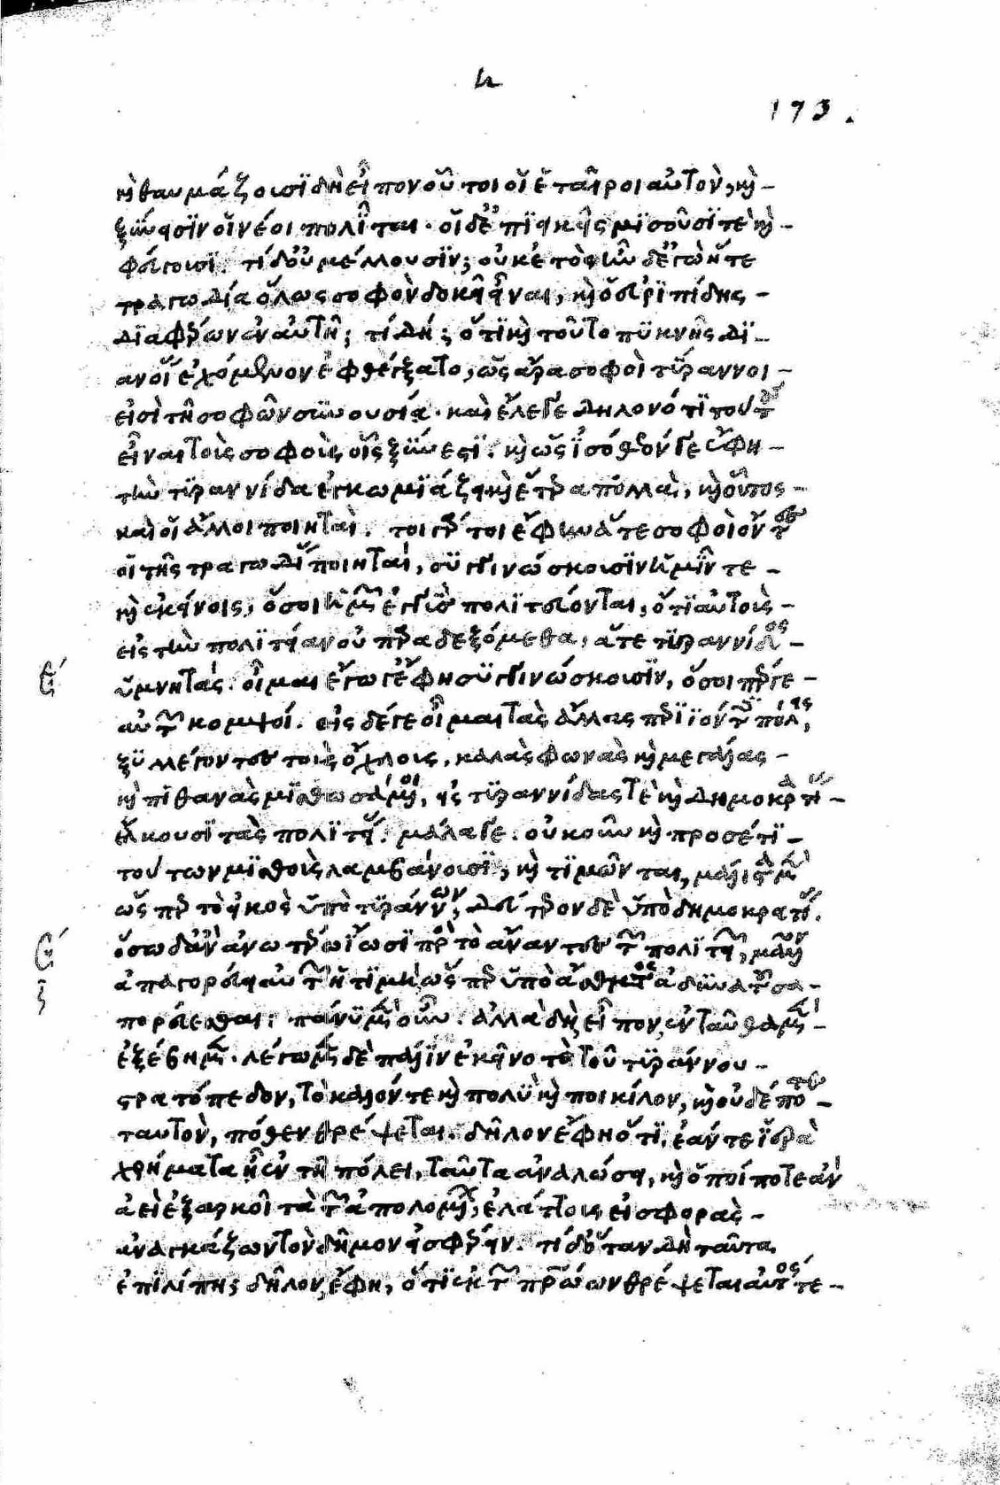 η
173.
καὶ θαυμάζουσι δὴ εἶπον οὗτοι οἱ ἑταῖροι αὐτὸν, καὶ
ξύνεισιν οἱ νέοι πολῖται. οἱ δ' ἐπιεικεῖς μισοῦσί τε καὶ
φεύγουσι. τί δ' οὐ μέλλουσιν; οὐκ ἐτὸς ἦν δ' ἐγὼ ἥ τε
τραγωδία ὅλως σοφὸν δοκεῖ εἶναι, καὶ ὁ εὐριπίδης
διαφέρων ἐν αὐτῇ; τί δή; ὅτι καὶ τοῦτο πυκνῆς δι
ανοίας ἐχόμενον ἐφθέγξατο, ὡς ἄρα σοφοὶ τύραννοι
εἰσὶ τῇ σοφῶν συνουσίᾳ. καὶ ἔλεγε δηλονότι τούτους
εἶναι τοὺς σοφοὺς οἷς ξύνεστι. καὶ ὡς ἰσόθεόν γε ἔφη
τὴν τυραννίδα ἐγκωμιάζει καὶ ἕτερα πολλὰ, καὶ οὗτος
καὶ οἱ ἄλλοι ποιηταὶ. τοιγάρτοι ἔφην ἅτε σοφοὶ ὄντες
οἱ τῆς τραγωδίας ποιηταί, συγγινώσκουσιν ἡμῖν τε
καὶ ἐκείνοις, ὅσοι ἡμῶν ἐγγὺς πολιτεύονται, ὅτι αὐτοὺς
εἰς τὴν πολιτείαν οὐ παραδεξόμεθα, ἅτε τυραννίδος
ὑμνητάς. οἶμαι ἔγωγ' ἔφη συγγινώσκουσιν, ὅσοι πέρ γε
αὐτῶν κομψοί. εἰς δέ γε οἶμαι τὰς ἄλλας περιϊόντες πόλεις,
ξυλλέγοντες τοὺς ὄχλους, καλὰς φωνὰς καὶ μεγάλας
καὶ πιθανὰς μισθωσάμενοι, εἰς τυραννίδας τὲ καὶ δημοκρατίας
ἕλκουσι τὰς πολιτείας. μάλα γε. οὐκοῦν καὶ προσέτι
τούτων μισθοὺς λαμβάνουσι, καὶ τιμῶνται, μάλιστα μὲν
ὥσπερ τὸ εἰκὸς ὑπὸ τυράννων, δεύτερον δὲ ὑπὸ δημοκρατίας.
ὅσω δ' ἂν ἀνωτέρω ἴωσι πρὸς τὸ ἄναντες τῶν πολιτειῶν, μᾶλλον
ἀπαγορεύει αὐτῶν ἡ τιμὴ ὥσπερ ὑπὸ ἄσθματος ἀδυνατοῦσα
πορεύεσθαι. πάνυ μὲν οὖν. ἀλλὰ δὴ εἶπον, ἐνταῦθα μὲν
ἐξέβημεν. λέγωμεν δὲ πάλιν ἐκεῖνο τὸ τοῦ τυράννου
στρατόπεδον, τὸ καλόν τε καὶ πολὺ καὶ ποικίλον, καὶ οὐδέποτε
ταυτὸν, πόθεν θρέψεται. δῆλον ἔφη ὅτι, ἐάν τε ἱερὰ
χρήματα ᾖ ἐν τῇ πόλει, ταῦτα ἀναλώσει, καὶ ὅποί ποτε ἂν
ἀεὶ ἐξαρκοῖ τὰ τῶν ἀποδομένων, ἐλάττους εἰσφορὰς
ἀναγκάζων τὸν δῆμον εἰσφέρειν. τί δ' ὅταν δὴ ταῦτα
ἐπιλίπῃ; δῆλον, ἔφη, ὅτι ἐκ τῶν πατρῴων θρέψεται αὐτός τε